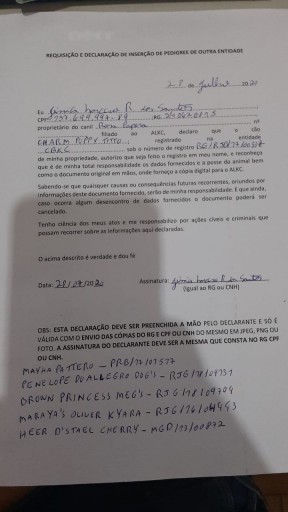 REQUISIÇÃO E DECLARAÇÃO DE INSERÇÃO DE PEDIGREES DE OUTRA ENTIDADE
28 de Julho 2020
Eu R dos Santos
CPF RG
proprietário do canil nº
filiado ao ALKC, declaro que o cão
CHARM POPPY TITO registrado na entidade
CBKC sob o número de registro
de minha propriedade, autorizo que seja feito o registro em meu nome, e reconheço
que é de minha total responsabilidade os dados fornecidos e a posse do animal bem
como o documento original em mãos, onde forneço a cópia digital para o ALKC.
Sabendo se que quaisquer causas ou consequências futuras recorrentes, oriundos por
informações deste documento fornecido, serão de minha responsabilidade. E que ainda,
caso ocorra algum desencontro de dados fornecidos o documento poderá ser
cancelado.
Tenho ciência dos meus atos e me responsabilizo por ações cíveis e criminais que
possam recorrer sobre as informações aqui declaradas.
O acima descrito é verdade e dou fé
Data: 28/07/2020 Assinatura: R dos Santos
(Igual ao RG ou CNH)
OBS: ESTA DECLARAÇÃO DEVE SER PREENCHIDA A MÃO PELO DECLARANTE E SÓ É
VÁLIDA COM O ENVIO DAS CÓPIAS DO RG E CPF OU CNH DO MESMO EM JPEG, PNG OU
FOTO. A ASSINATURA DO DECLARANTE DEVE SER A MESMA QUE CONSTA NO RG CPF
OU CNH.
MAYHA PATTERO - PRB/17/01577
PENELOPE DU ALLEGRO DOG'S - RJG/18/01731
BROWN PRINCESS MEG'S - RJG/18/04704
MARAYA'S OLIVER KYARA - RJG/16/04493
HEER D'STAEL CHERRY - MGD/13/00872